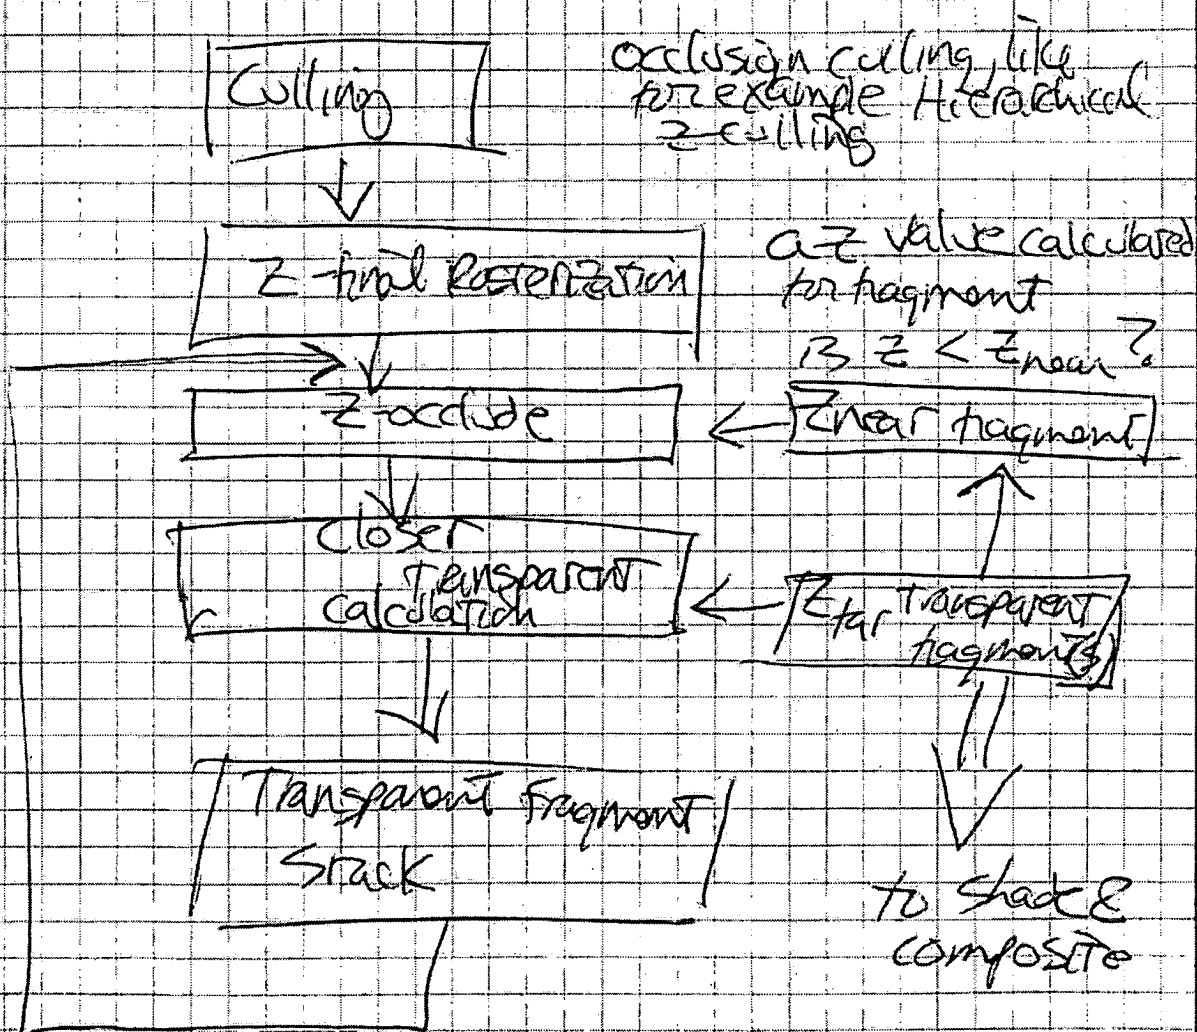 Culling
occlusion culling, like
for example Hierarchical
z-culling
Z-final Rasterization
a z value calculated
for fragment
is z < Znear?
Z-occlude
Znear fragment
closer
transparent
calculation
Zfar transparent
fragment(s)
Transparent Fragment
Stack
to shade &
composite